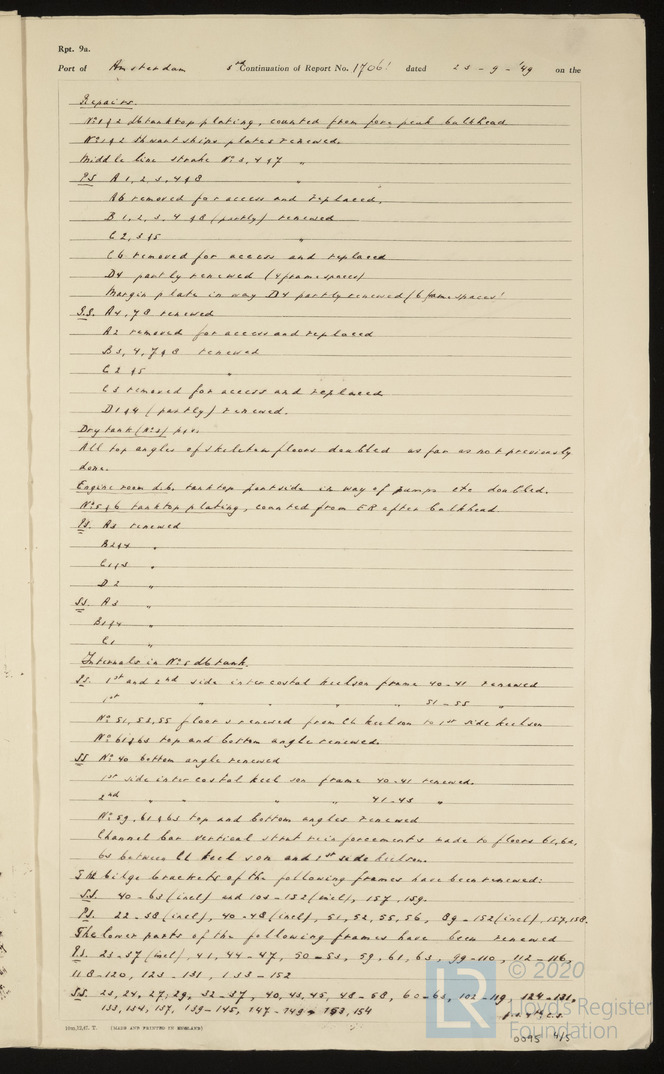 Rpt. 9a.
Port of Amsterdam 5th Continuation of Report No. 1706! dated 23 - 9 - '49 on the
Repairs.
No 1 & 2 db tanktop plating, counted from fore peak bulkhead
No 1 & 2 thwartships plates renewed.
Middle line strake No 3, 4 & 7 "
P.S A 1, 2, 3, 4 & 8 "
A6 removed for access and replaced.
B 1, 2, 3, 4 & 8 (partly) renewed
C 2, 3 & 5 "
C6 removed for access and replaced
D4 partly renewed (4 framespaces)
Margin plate in way D4 partly renewed (6 framespaces)
S.S. A4, 7 8 renewed
A2 removed for access and replaced
B3, 4, 7 & 8 renewed
C2 & 5 "
C3 removed for access and replaced
D1 & 4 (partly) renewed.
Dry tank (No 3) p&s.
All top angles of skeleton floors doubled as far as not previously
done.
Engine room d.b. tanktop portside in way of pumps etc doubled.
No 5 & 6 tanktop plating, counted from ER after bulkhead
P.S. A3 renewed
B2 & 4 "
C1 & 3 "
D2 "
S.S. A3 "
B1 & 4 "
C1 "
Internals in No 5 db tank.
P.S. 1st and 2nd side intercostal keelson frame 40-41 renewed
1st " " " " 51-55 "
No 51, 53, 55 floors renewed from CL keelson to 1st side keelson
No 61 & 63 top and bottom angle renewed.
SS No 40 bottom angle renewed
1st side intercostal keelson frame 40-41 renewed.
2nd " " " " 41-43 "
No 59, 61 & 63 top and bottom angles renewed
Channel bar vertical strut reinforcements made to floors 61, 62,
63 between CL keelson and 1st side keelson.
The bilge brackets of the following frames have been renewed:
S.S. 40-63 (incl) and 103-152 (incl), 157, 159.
P.S. 22-38 (incl), 40-48 (incl), 51, 52, 55, 56, 89-152 (incl), 157, 158.
The lower parts of the following frames have been renewed
P.S. 23-37 (incl), 41, 44-47, 50-53, 59, 61, 63, 99-110, 112-116,
118-120, 123-131, 133-152
SS 23, 24, 27, 29, 32-37, 40, 43, 45, 48-58, 60-63, 102-119, 124-131,
133, 134, 137, 139-145, 147-149, 153, 154
10m,12,47. T. (MADE AND PRINTED IN ENGLAND)
© 2020
LR Lloyd's Register
Foundation
0095 4/5